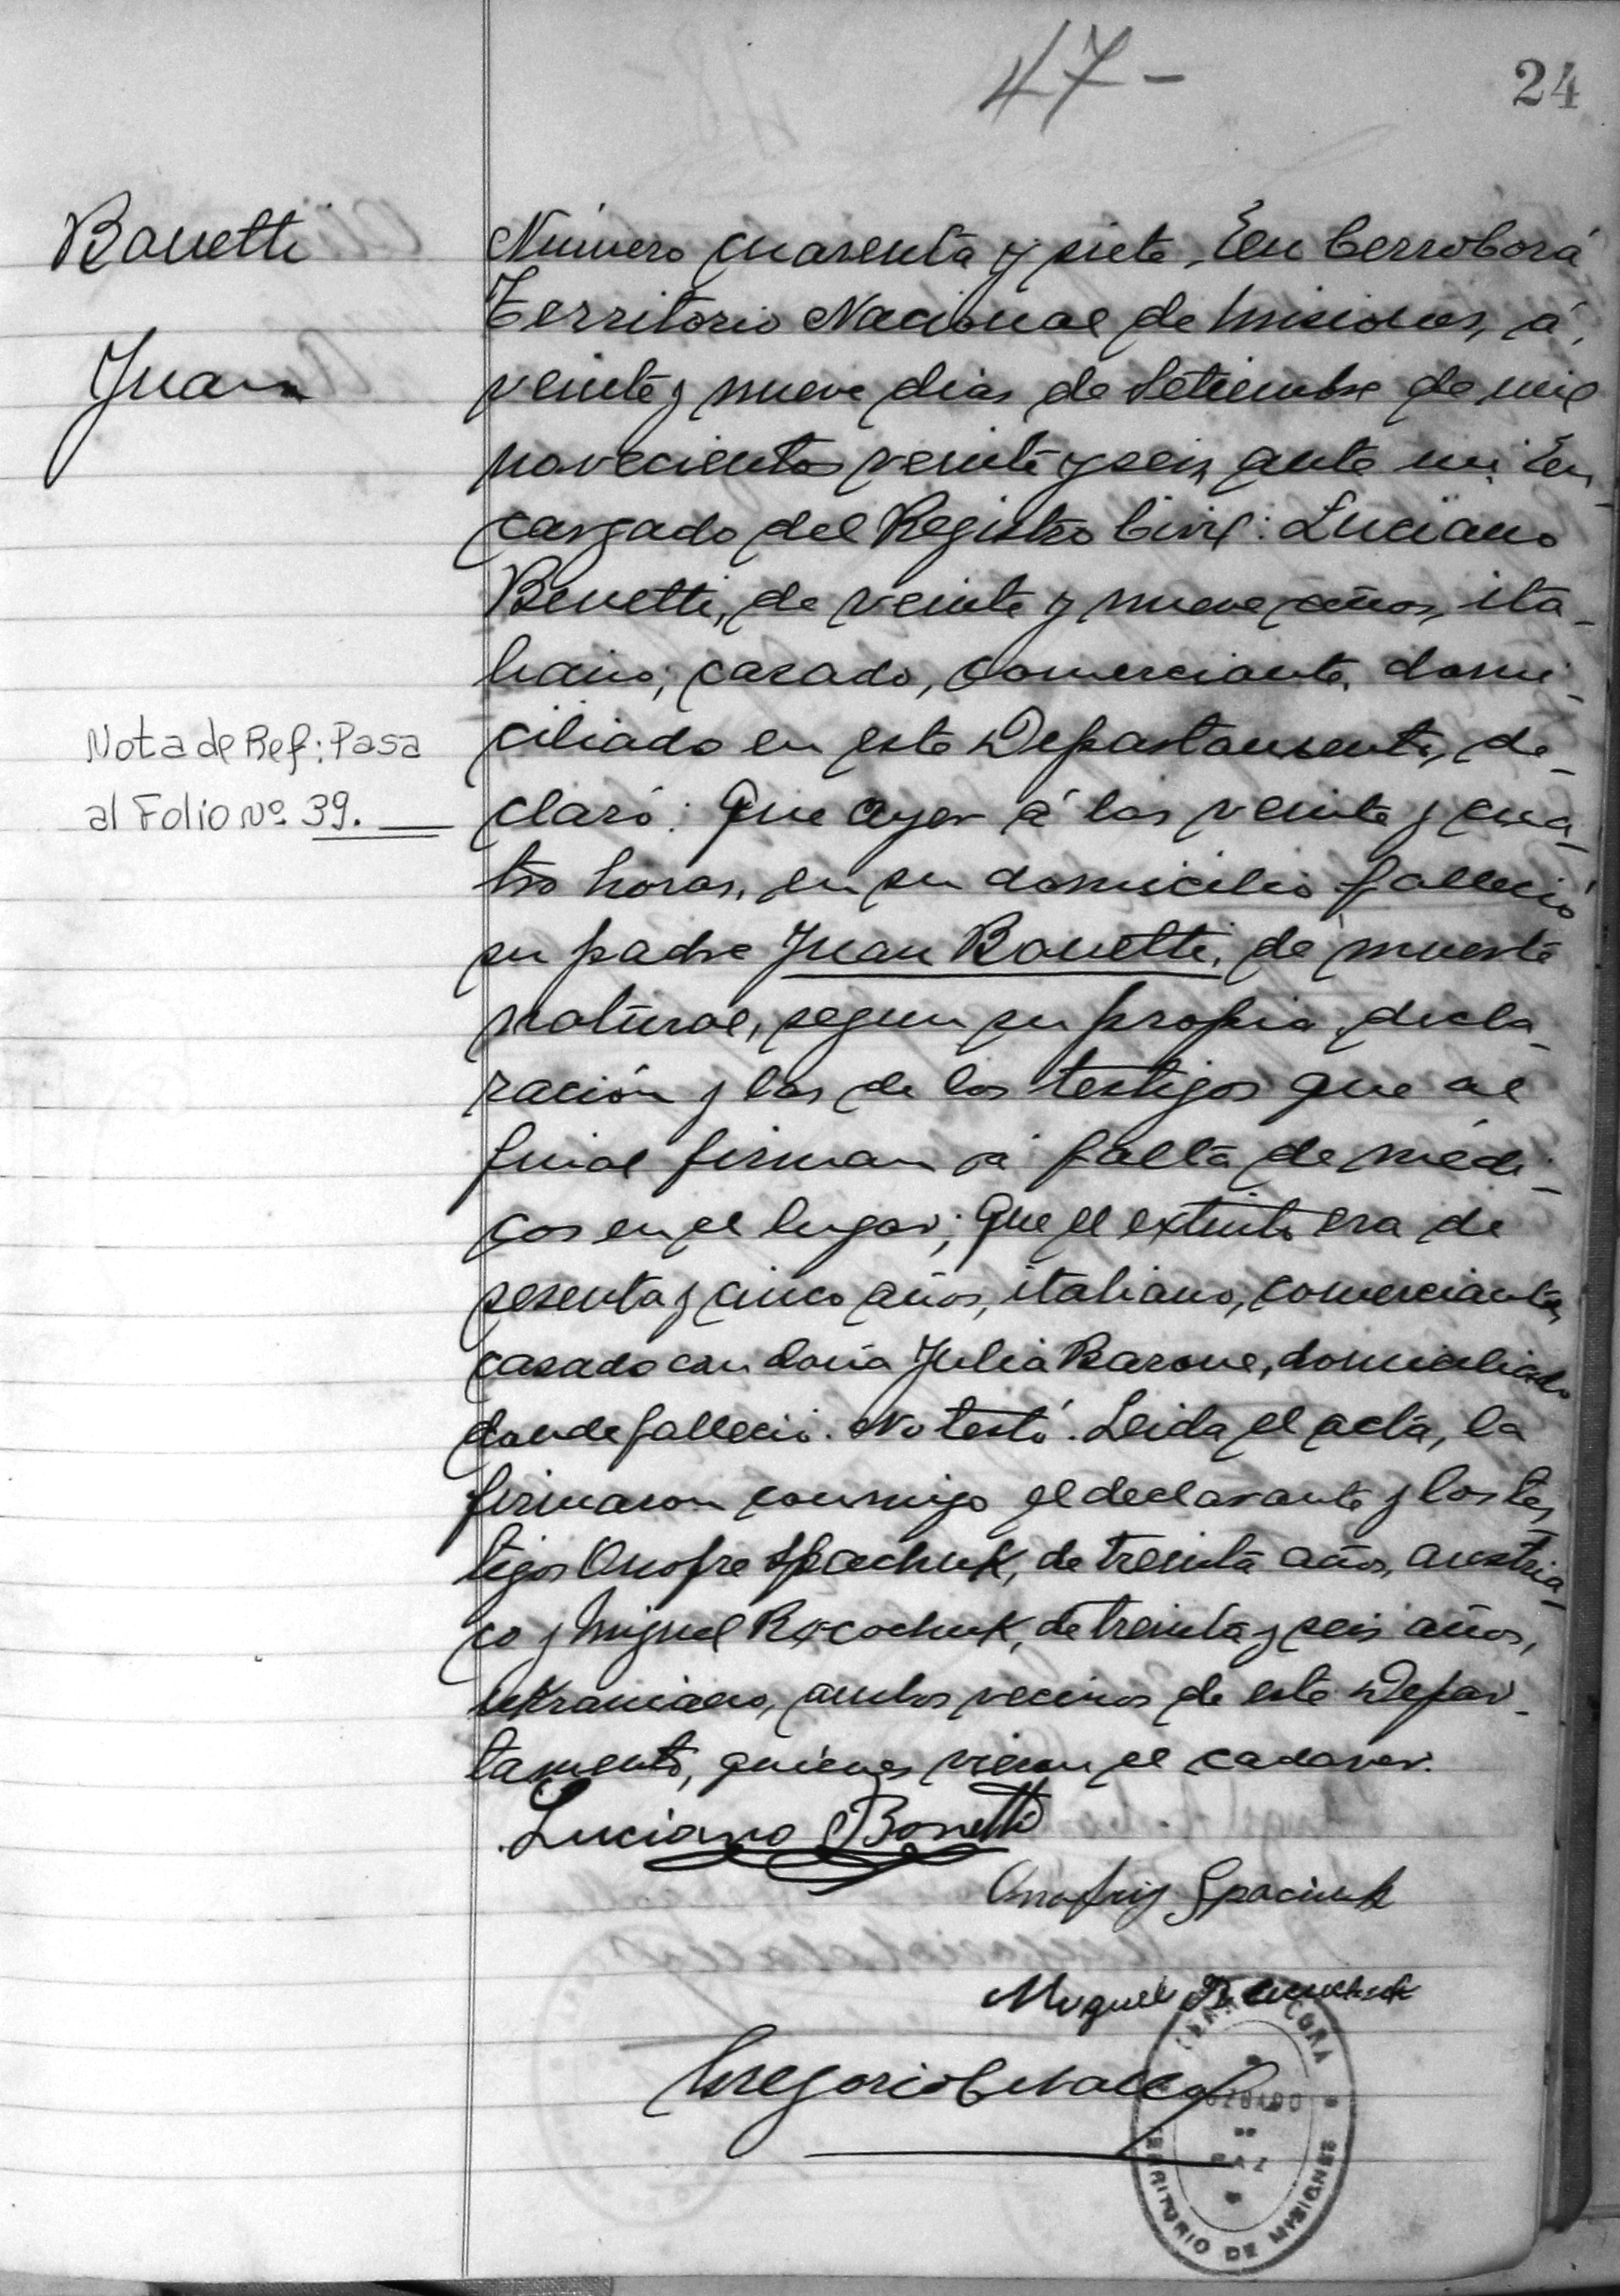 47-
24
Bonetti
Juan
Nota de Ref: Pasa
al Folio Nº 39.
Número cuarenta y siete, En Cerro Corá
Territorio Nacional de Misiones, á
veinte y nueve dias de Setiembre de mil
novecientos veinte y seis, ante mi En-
cargado del Registro Civil: Luciano
Benetti, de veinte y nueve años, ita-
liano, casado, comerciante, domi-
ciliado en este Departamento, de-
claró: Que ayer á las veinte y cua-
tro horas, en su domicilio falleció
su padre Juan Bonetti, de muerte
natural, segun su propia decla-
ración y las de los testigos que al
final firman á falta de médi-
cos en el lugar; Que el extinto era de
sesenta y cinco años, italiano, comerciante,
casado con doña Julia Barone, domiciliado
donde falleció. No testó. Leida el acta, la
firmaron conmigo el declarante y los tes-
tigos Onofre Spachuk, de treinta años, austria-
co y Miguel, de treinta y seis años,
ukraniano, ambos vecinos de este Depar-
tamento, quienes vieron el cadaver.
Luciano Bonetti
Onofrij Spaciuk
Miguel
Gregorio
CERRO CORÁ
JUZGADO
DE
PAZ
TERRITORIO DE MISIONES